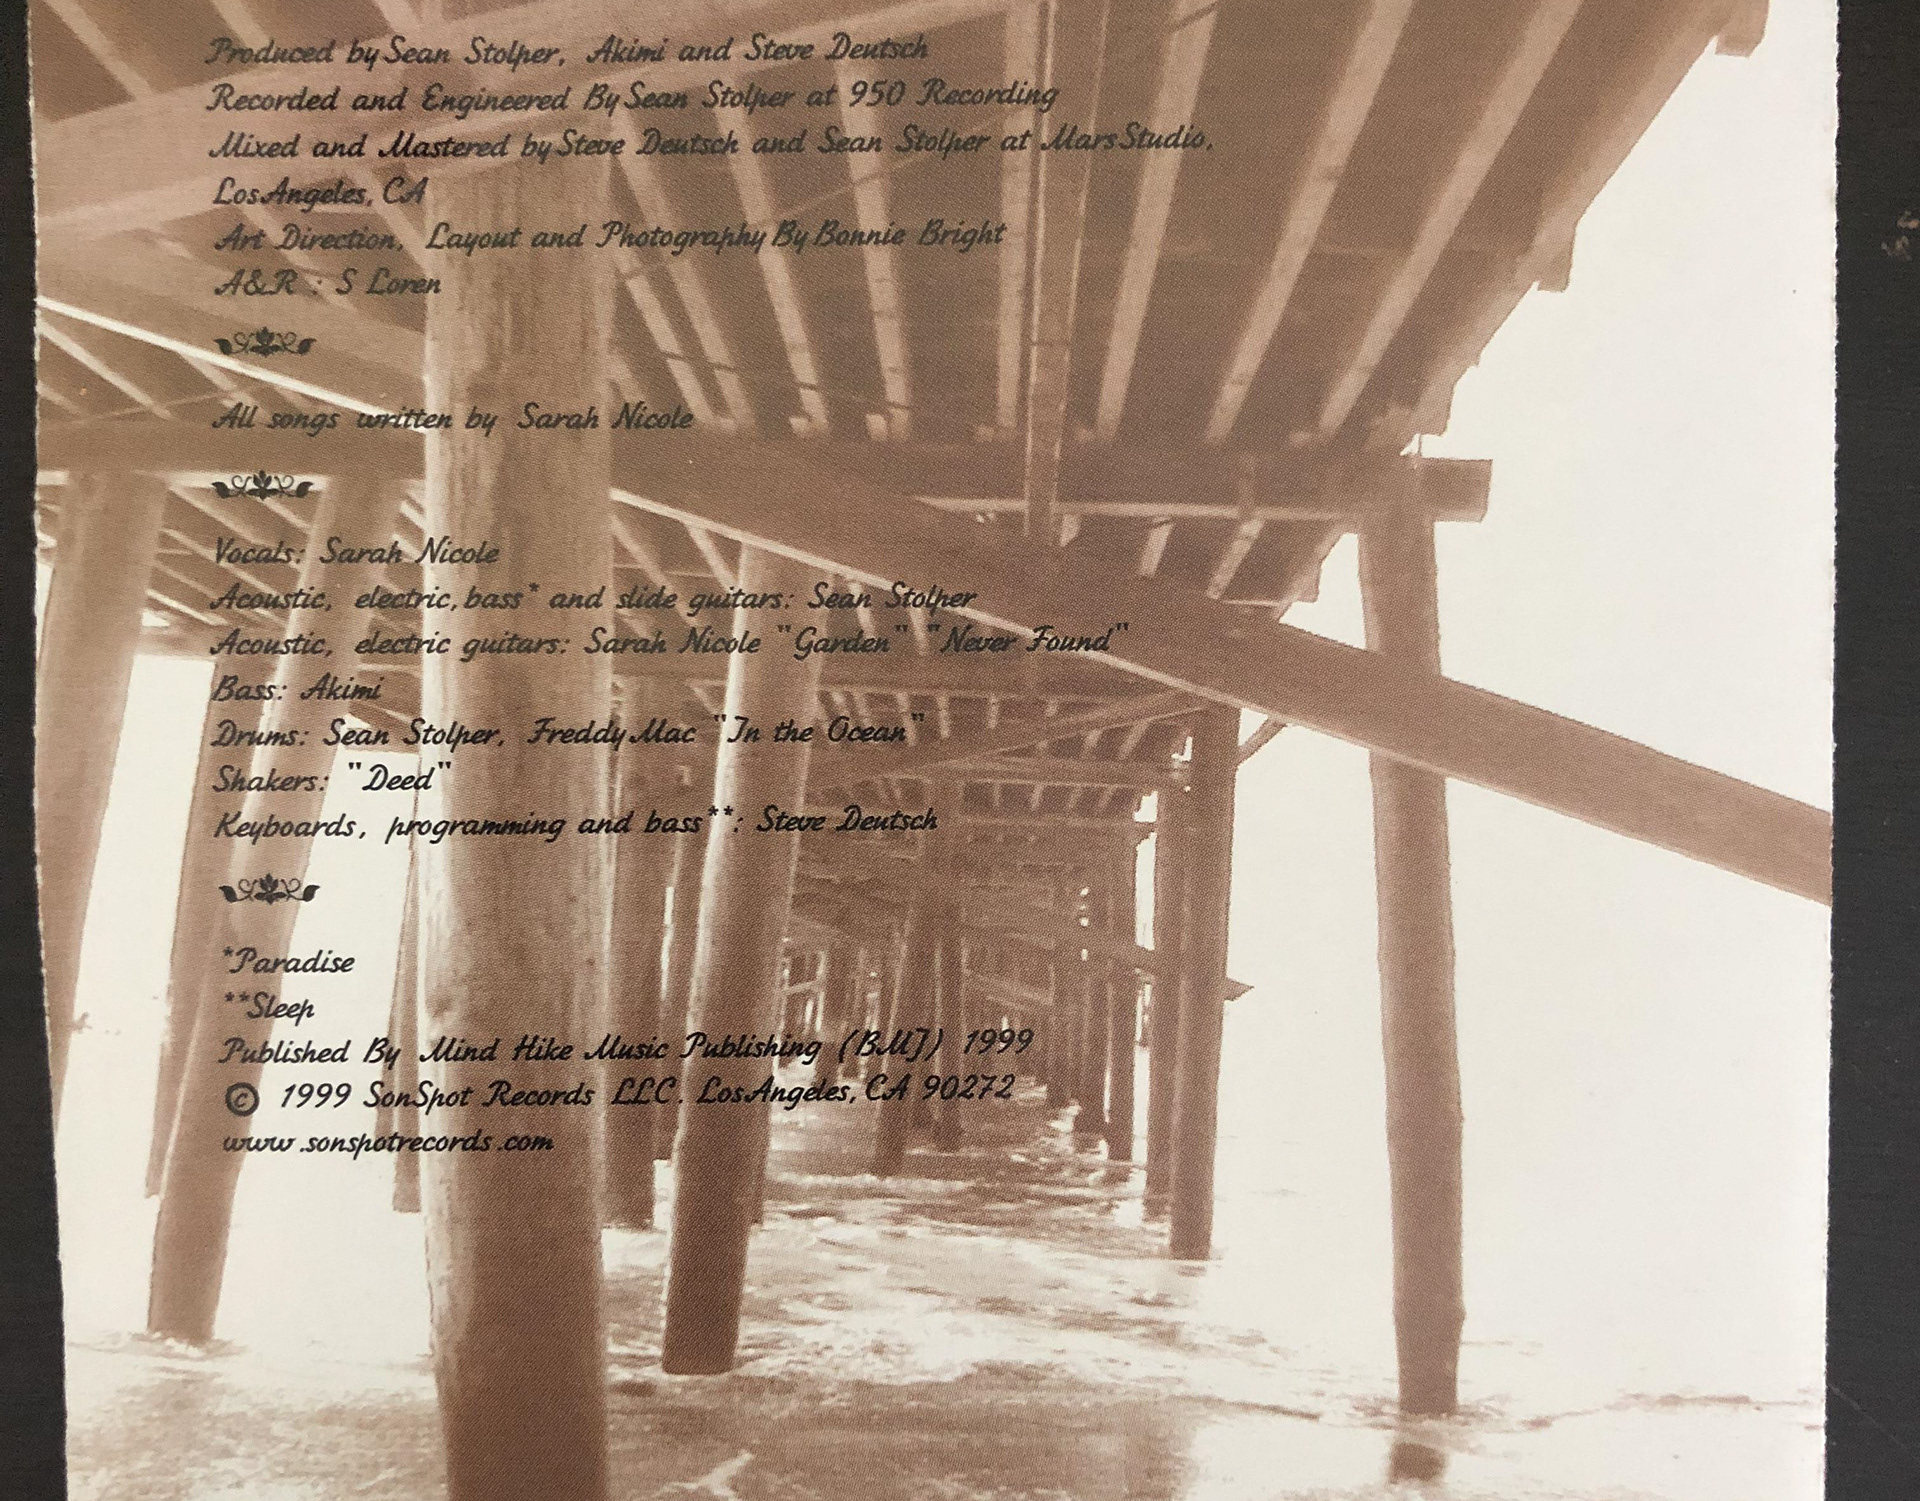 Produced by Sean Stolper, Akimi and Steve Deutsch
Recorded and Engineered By Sean Stolper at 950 Recording
Mixed and Mastered by Steve Deutsch and Sean Stolper at Mars Studio,
Los Angeles, CA
Art Direction, Layout and Photography By Bonnie Bright
A&R : S Loren
All songs written by Sarah Nicole
Vocals: Sarah Nicole
Acoustic, electric, bass* and slide guitars: Sean Stolper
Acoustic, electric guitars: Sarah Nicole "Garden" "Never Found"
Bass: Akimi
Drums: Sean Stolper, Freddy Mac "In the Ocean"
Shakers: "Deed"
Keyboards, programming and bass**: Steve Deutsch
*Paradise
**Sleep
Published By Mind Hike Music Publishing (BMI) 1999
© 1999 SonSpot Records LLC. Los Angeles, CA 90272
www.sonspotrecords.com